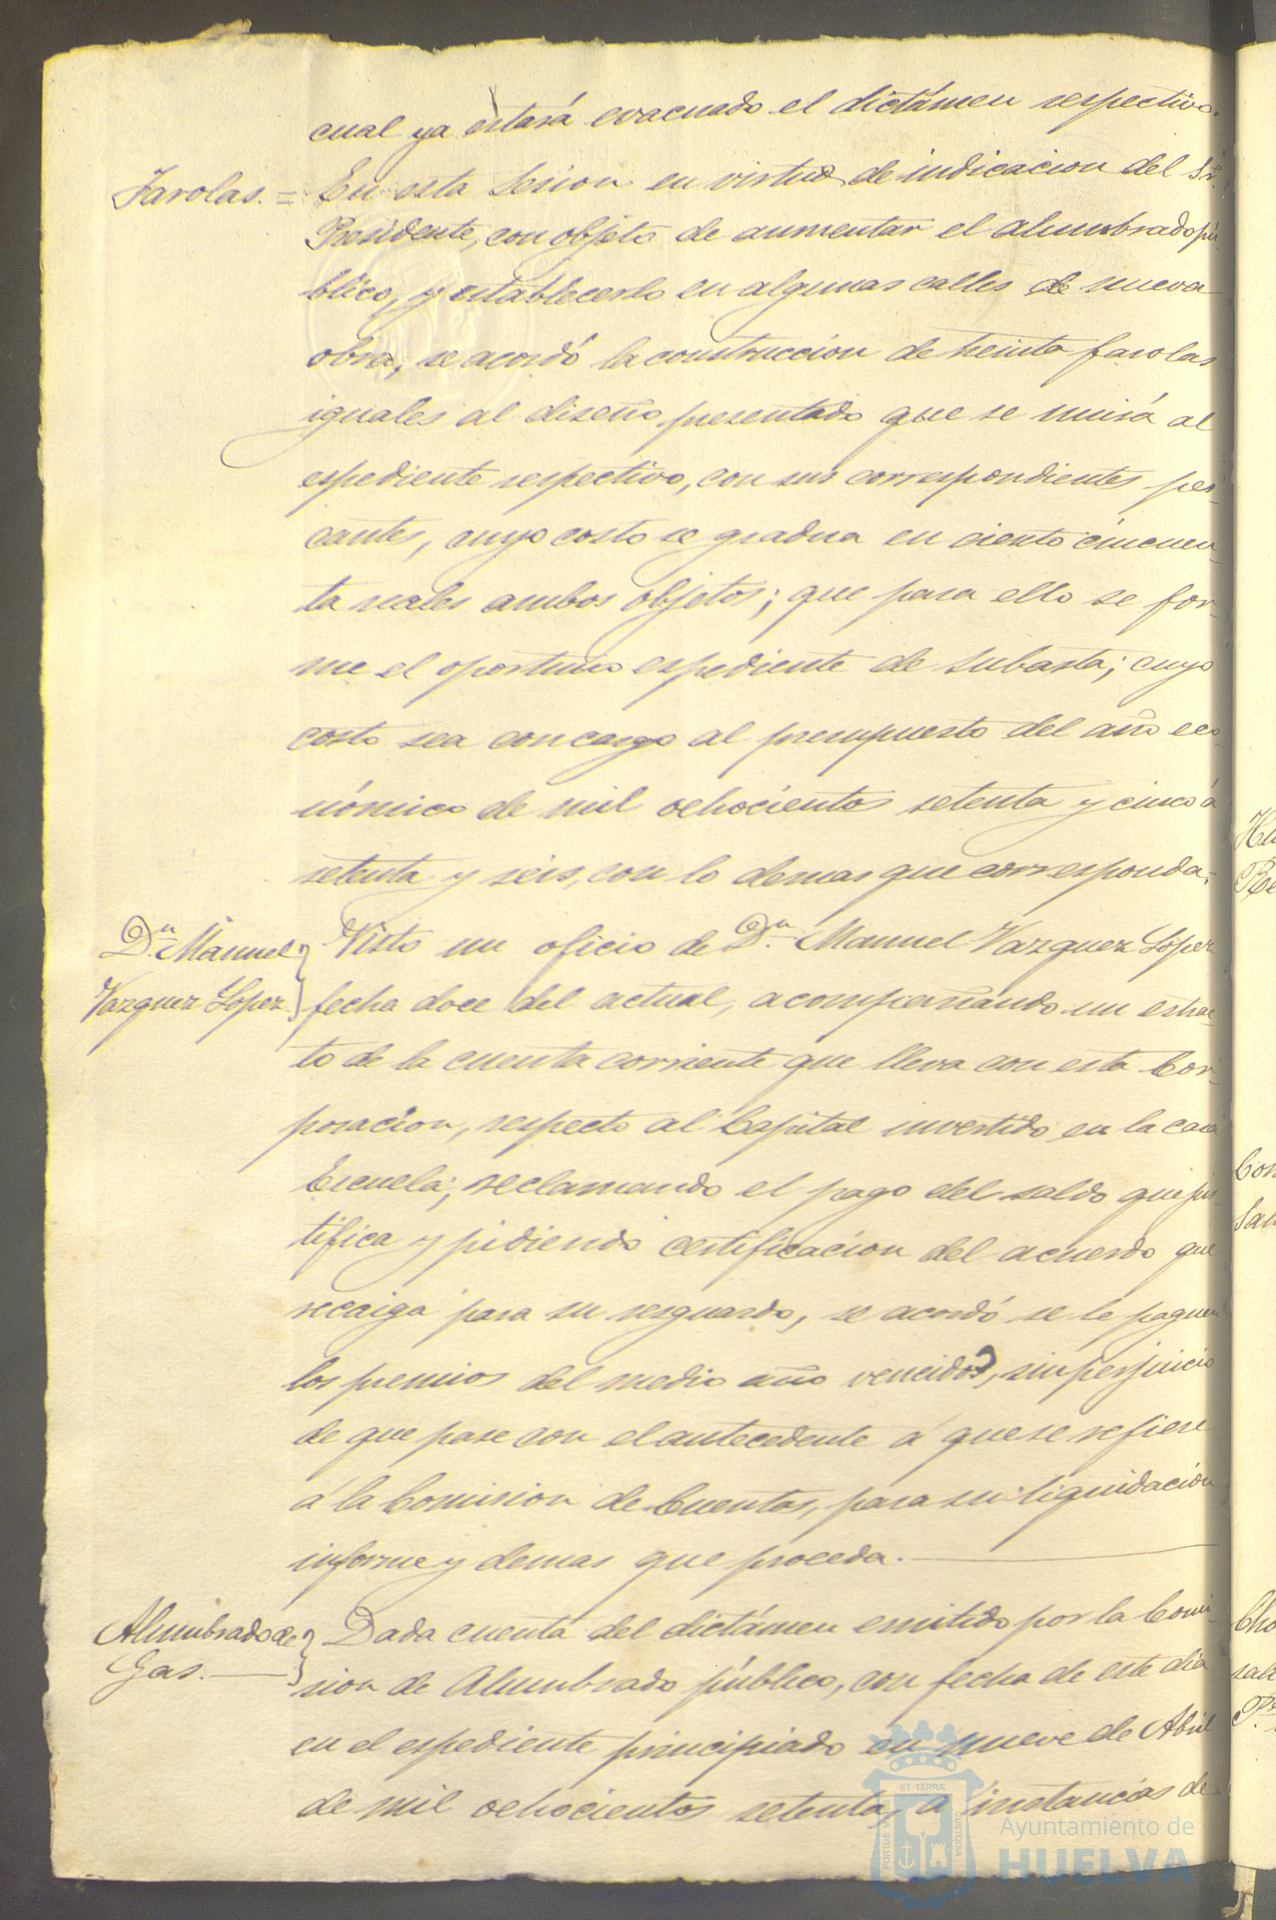 cual ya estará evacuado el dictámen respectivo.
Farolas. = En esta Sesion en virtud de indicacion del Sr.
Presidente, con objeto de aumentar el alumbrado pú
blico, y establecerlo en algunas calles de nueva
obra, se acordó la construccion de treinta farolas
iguales al diseño presentado que se unirá al
espediente respectivo, con sus correspondientes pes-
cantes, cuyo costo se gradua en ciento cincuen-
ta reales ambos objetos; que para ello se for-
me el oportuno espediente de subasta; cuyo
costo sea con cargo al presupuesto del año eco-
nómico de mil ochocientos setenta y cinco á
setenta y seis, con lo demas que corresponda.
Dn. Manuel Visto un oficio de Dn. Manuel Vazquez Lopez
Vazquez Lopez. fecha doce del actual, acompañando un estrac-
to de la cuenta corriente que lleva con esta Cor-
poracion, respecto al Capital invertido en la casa
Escuela; reclamando el pago del saldo que jus-
tifica y pidiendo certificacion del acuerdo que
recaiga para su resguardo, se acordó se le paguen
los premios del medio año vencido, sin perjuicio
de que pase con el antecedente á que se refiere
á la Comision de Cuentas, para su liquidacion
informe y demas que proceda.
Alumbrado de Dada cuenta del dictámen emitido por la Comi-
Gas. sion de Alumbrado público, con fecha de este dia
en el espediente principiado en nueve de Abril
de mil ochocientos setenta, á instancias de
PORTUS MARIS ET TERRÆ CUSTODIA
Ayuntamiento de
HUELVA